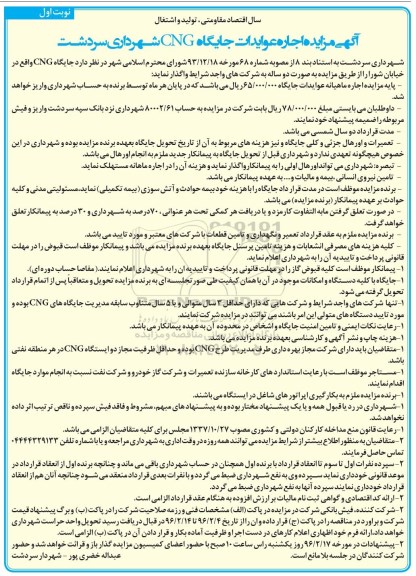 نوبت اول
سال اقتصاد مقاومتی ، تولید و اشتغال
آگهی مزایده اجاره عوایدات جایگاه CNG شهرداری سردشت
شهرداری سردشت به استناد بند ۸ از مصوبه شماره ۶۸ مورخه ۹۳/۱۲/۱۸ شورای محترم اسلامی شهر در نظر دارد جایگاه CNG واقع در
خیابان شورا را از طریق مزایده به صورت دو ساله به شرکت های واجد شرایط واگذار نماید:
- پایه مزایده اجاره ماهیانه عوایدات جایگاه ۶۵/۰۰۰/۰۰۰ ریال می باشد که در پایان هر ماه توسط برنده به حساب شهرداری واریز خواهد
شد.
- داوطلبان می بایستی مبلغ ۷۸/۰۰۰/۰۰۰ ریال بابت شرکت در مزایده به حساب ۸۰۰۰۲/۶۱ شهرداری نزد بانک سپه سردشت واریز و فیش
مربوطه را ضمیمه پیشنهاد خود نمایند.
- مدت قرارداد دو سال شمسی می باشد.
- تعمیرات و اورهال جزئی و کلی جایگاه و نیز هزینه های مربوط به آن از تاریخ تحویل جایگاه بعهده برنده مزایده بوده و شهرداری در این
خصوص هیچگونه تعهدی ندارد و شهرداری قبل از تحویل جایگاه به پیمانکار جدید ملزم به انجام اورهال می باشد.
- تبصره: شهرداری می تواند اورهال اولی را به پیمانکار واگذار نماید و هزینه آن را در اجاره ماهانه مستهلک نماید.
- تامین نیروی انسانی ، بیمه و مالیات و... به عهده پیمانکار می باشد.
- برنده مزایده موظف است در مدت قرارداد جایگاه را با هزینه خود بیمه حوادث و آتش سوزی (بیمه تکمیلی) نماید، مسئولیتی مدنی و کلیه
حوادث بر عهده پیمانکار (برنده مزایده) می باشد.
- در صورت تعلق گرفتن مابه التفاوت کارمزد و یا دریافت هر کمکی تحت هر عنوانی ، ۷۰ درصد به شهرداری و ۳۰ درصد به پیمانکار تعلق
خواهد گرفت.
- برنده مزایده ملزم به عقد قرارداد تعمیر و نگهداری و تامین قطعات با شرکت های معتبر و مورد تایید می باشد.
- کلیه هزینه های مصرفی انشعابات و هزینه تامین پرسنل جایگاه بعهده برنده مزایده می باشد و پیمانکار موظف است قبوض را در مهلت
قانونی پرداخت و تاییدیه آن را به شهرداری اعلام نماید.
۱- پیمانکار موظف است کلیه قبوض گاز را در مهلت قانونی پرداخت و تاییدیه آن را به شهرداری اعلام نمایند.( مفاصا حساب دوره ای).
۱- جایگاه با کلیه دستگاه و امکانات موجود در آن با همان کیفیت طی صورتجلسه ای به برنده مزایده تحویل و متعاقباً پس از اتمام قرارداد
تحویل گرفته می شود.
۱- تنها شرکت های واجد شرایط و شرکت هایی که دارای حداقل ۳ سال متوالی و یا ۵ سال متناوب سابقه مدیریت جایگاه های CNG بوده و
مورد تایید دستگاه های متولی این امر باشند می توانند در مزایده شرکت نمایند.
۱- رعایت نکات ایمنی و تامین امنیت جایگاه و اشخاص در محدوده آن به عهده پیمانکار می باشد.
۱- هزینه چاپ و نشر آگهی و کارشناسی بعهده برنده مزایده می باشد.
۱- متقاضیان باید دارای شرکت مجاز بهره داری طرف مدیریت طرح CNG بوده و حداقل ظرفیت مجاز دو ایستگاه CNG در هر منطقه نفتی
باشد.
- مستاجر موظف است با رعایت استانداردهای کارخانه سازنده تعمیرات و شرکت گاز خودرو و شرکت نفت نسبت به انجام موارد جایگاه
اقدام نمایند.
- برنده مزایده ملزم به بکارگیری اپراتورهای شاغل در ایستگاه می باشند.
۱- شهرداری در رد یا قبول همه و یا یک پیشنهاد مختار بوده و به پیشنهاد های مبهم، مشروط و فاقد فیش سپرده و ناقص ترتیب اثر داده
نخواهد شد.
۱- رعایت قانون منع مداخله کارکنان دولتی و کشوری مصوب ۱۳۳۷/۱۰/۲۷ مجلس برای کلیه متقاضیان الزامی می باشد.
۲- متقاضیان به منظور اطلاع بیشتر از شرایط مزایده می توانند همه روزه در وقت اداری به شهرداری مراجعه و یا با شماره تلفن ۰۴۴۴۴۳۲۹۱۳۳
تماس حاصل فرمایند.
۲- سپرده نفرات اول تا سوم تا انعقاد قرارداد با برنده اول همچنان در حساب شهرداری باقی می ماند و چنانچه برنده اول از انعقاد قرارداد در
موعد قانونی خودداری نماید سپرده وی به نفع شهرداری ضبط می گردد و با نفرات بعدی قرارداد منعقد می شود چنانچه آنان هم از انعقاد
قرارداد خودداری نمایند سپرده آنها به نفع شهرداری ضبط می گردد.
۲- ارائه کد اقتصادی و گواهی ثبت نام مالیات بر ارزش افزوده به هنگام عقد قرارداد الزامی است.
۲- شرکت کننده، فیش بانکی شرکت در مزایده در پاکت (الف) مشخصات فنی و رزمه صلاحیت شرکت را در پاکت (ب) و برگ پیشنهاد قیمت
شرکت و برآورد در مناقصه را در پاکت (ج) قرار داده و آن را از تاریخ ۹۶/۲/۴ تا ۹۶/۲/۱۴ در قبال دریافت رسید تحویل واحد حراست شهرداری
خواهد داد، ارائه فرم خود اظهاری اعلام کارهای در دست اجرا و ظرفیت آماده بکار و قرار دادن آن در پاکت (ب) الزامی است.
۲- پیشنهادات در مورخه ۹۶/۲/۱۷ روز یکشنبه راس ساعت ۱۰ صبح با حضور اعضای کمیسیون مزایده گذار باز و قرائت خواهد شد و حضور
شرکت کنندگان در جلسه بلامانع است.
عبداله خضری پور - شهردار سردشت